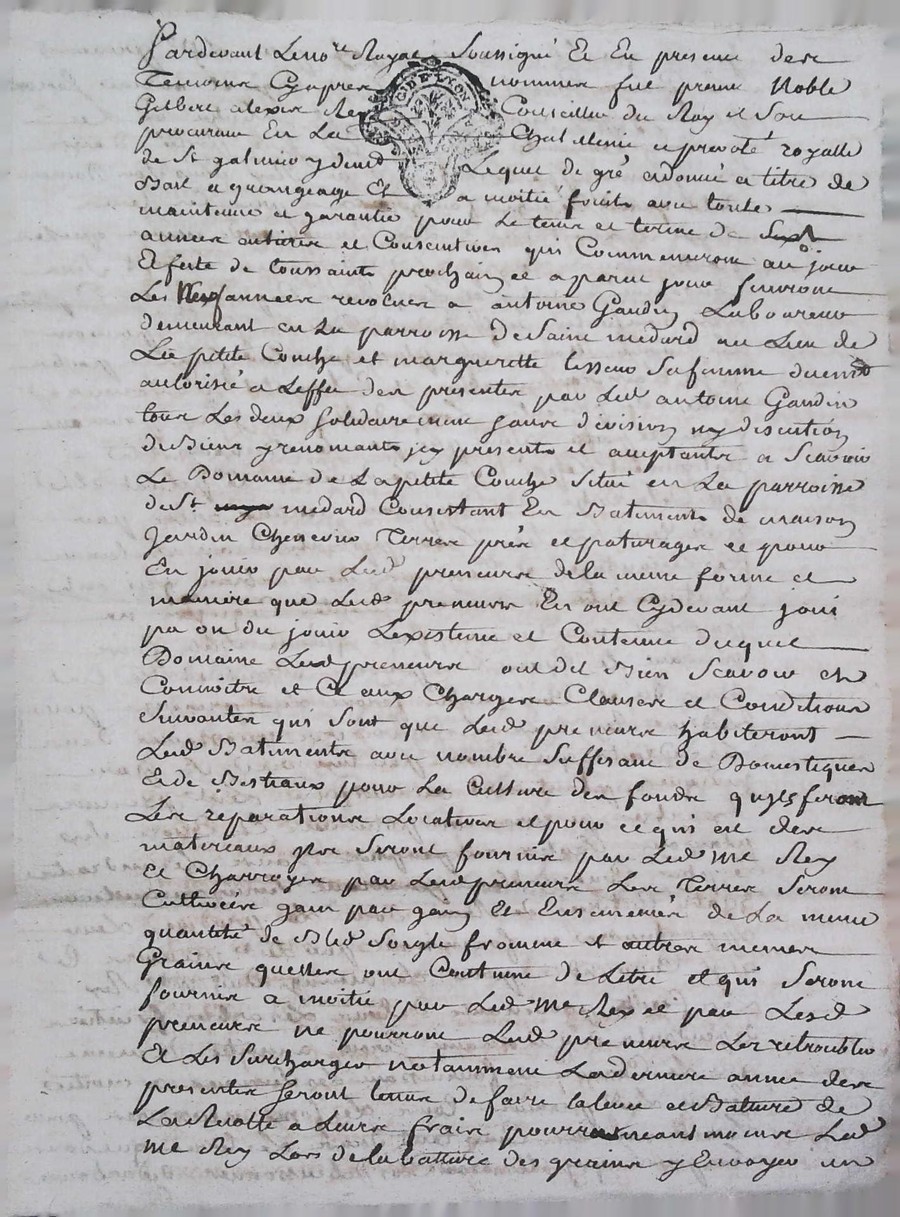 Pardevant Le no.re Royal Soussigné Et En presence des
Temoins Cyapres nommes fut present Noble
Gilbert alexis Rey Conseiller du Roy et Son
procureur En La Chatellenie et prevoté royalle
G.DE LYON
de St galmier y demt Lequel de gré adonné a titre de
Bail a grangeage Et a moitié fruits avec toute
maintenue et garantie pour Le tems et terme de
années entieres et Consecutives qui Commenceront au jour
Et feste de toussaints prochain et a pareil jour finiront
Les années revolues a antoine Gaudin Laboureur
demeurant en La parroisse de Saint medard au Lieu de
La petite Combe et margueritte Sa femme
autorisée a Leffet des presentes par Led antoine Gaudin
tous Les deux Solidairement Sans division ny discution
de Biens y renonçants icy presents et acceptants a Scavoir
Le Domaine de La petite Combe Situé en La parroisse
de St medard Consistant En Batiments de maison
Jardin Chenevier Terres prés et paturages et pour
En jouir par Led preneurs de la meme forme et
maniere que Led preneurs En ont Cydevant joui
pu ou du jouir Lexistence et Contenue duquel
Domaine Lesd preneurs ont dit Bien Scavoir et
Connoitre et Ce aux Charges Clauses et Conditions
Suivantes qui Sont que Led preneurs habiteront
Led Batiments avec nombre Suffisant de Domestiques
Et de Bestiaux pour La Culture des fonds quils feront
Les reparations Locatives et pour ce qui est des
materiaux ils Seront fournis par Led Me Rey
Et Charroyes par Lesd preneurs Les Terres Seront
Cultivées gain par gain Et Ensemencés de La meme
quantité de Bled Seigle froment et autres menus
Grains quelles ont Coutume de Letre et qui Seront
fournis a moitié par Led Me Rey et par Lesd
preneurs ne pourront Led preneurs Les retroubler
Et Les Surcharger notamment La derniere année des
presentes Seront tenus de faire La levée et Batture de
La Recolte a Leurs frais pourra neantmoins Led
Me Rey Lors de la batture des grains y Envoyer un